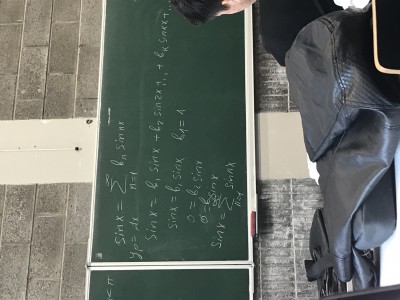 sinx = ∑_{n=1}^{∞} b_n sin nx
sinx = b_1 sinx + b_2 sin2x + ... + b_k sin kx + ...
sinx = b_1 sinx b_1 = 1
0 = b_2 sinx
sinx = ∑_{n=1}^{∞} sin nx